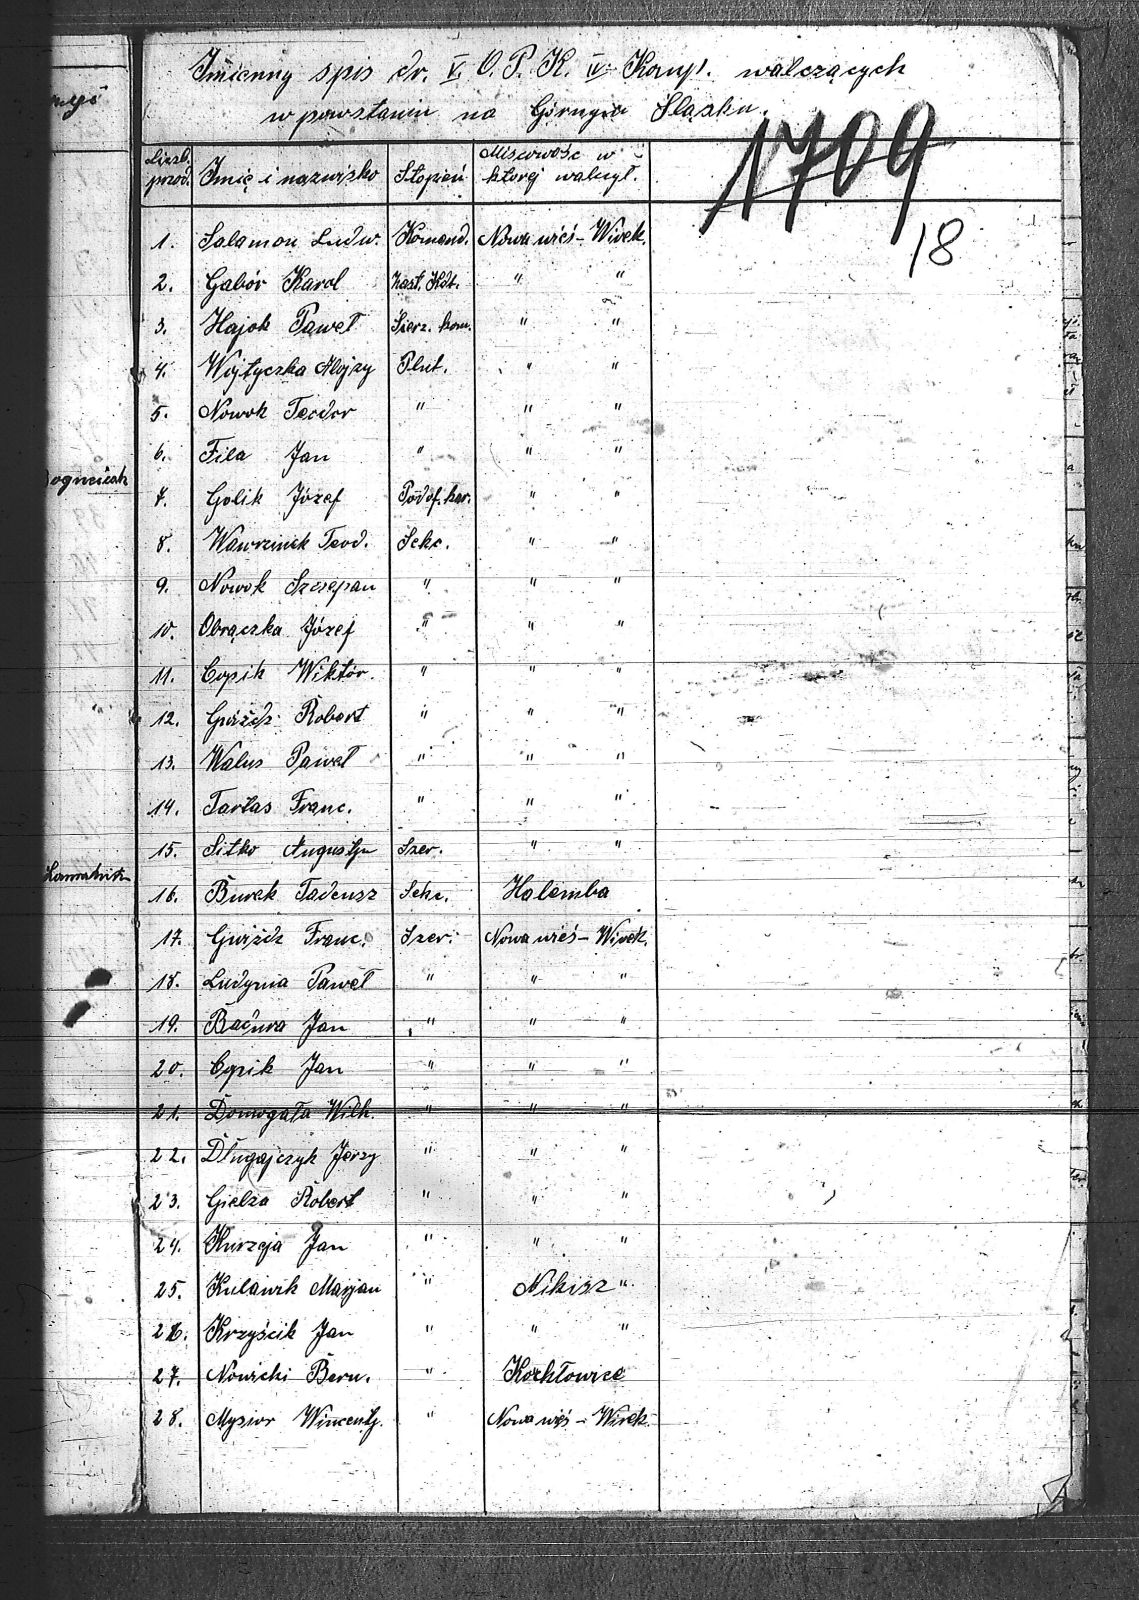 Imienny spis dr. V. O. P. K. IV. Komp. walczących
w powstaniu na Górnym Śląsku.
1709
18
Liczb. porząd. Imię i nazwisko Stopień Miscowość w ktorej walczył.
1. Salamon Ludw. Komend. Nowa wieś - Wirek.
2. Gabór Karol Zast. Kdt. " "
3. Hajok Paweł Szerz. kom. " "
4. Wojtyczka Alojzy Plut. " "
5. Nowok Teodor " " "
6. Fila Jan " " "
7. Golik Józef Podof. kar. " "
8. Wawrzinek Teod. Sekc. " "
9. Nowok Szczepan " " "
10. Obrączka Józef " " "
11. Copik Wiktór. " " "
12. Gwiżdż Robert " " "
13. Walus Paweł " " "
14. Tarłas Franc. " " "
15. Sitko Augustyn Szer. " "
16. Burek Tadeusz Sekc. Halemba
17. Gwiżdż Franc. Szer. Nowa wieś - Wirek.
18. Ludynia Paweł " " "
19. Baćura Jan " " "
20. Copik Jan " " "
21. Domogała Wilh. " " "
22. Długajczyk Jerzy " " "
23. Gielza Robert " " "
24. Kurzeja Jan " " "
25. Kulawik Marjan " Nikisz "
26. Krzyścik Jan " " "
27. Nowicki Bern. " Kochłowice
28. Mysior Wincenty. " Nowa wieś - Wirek.